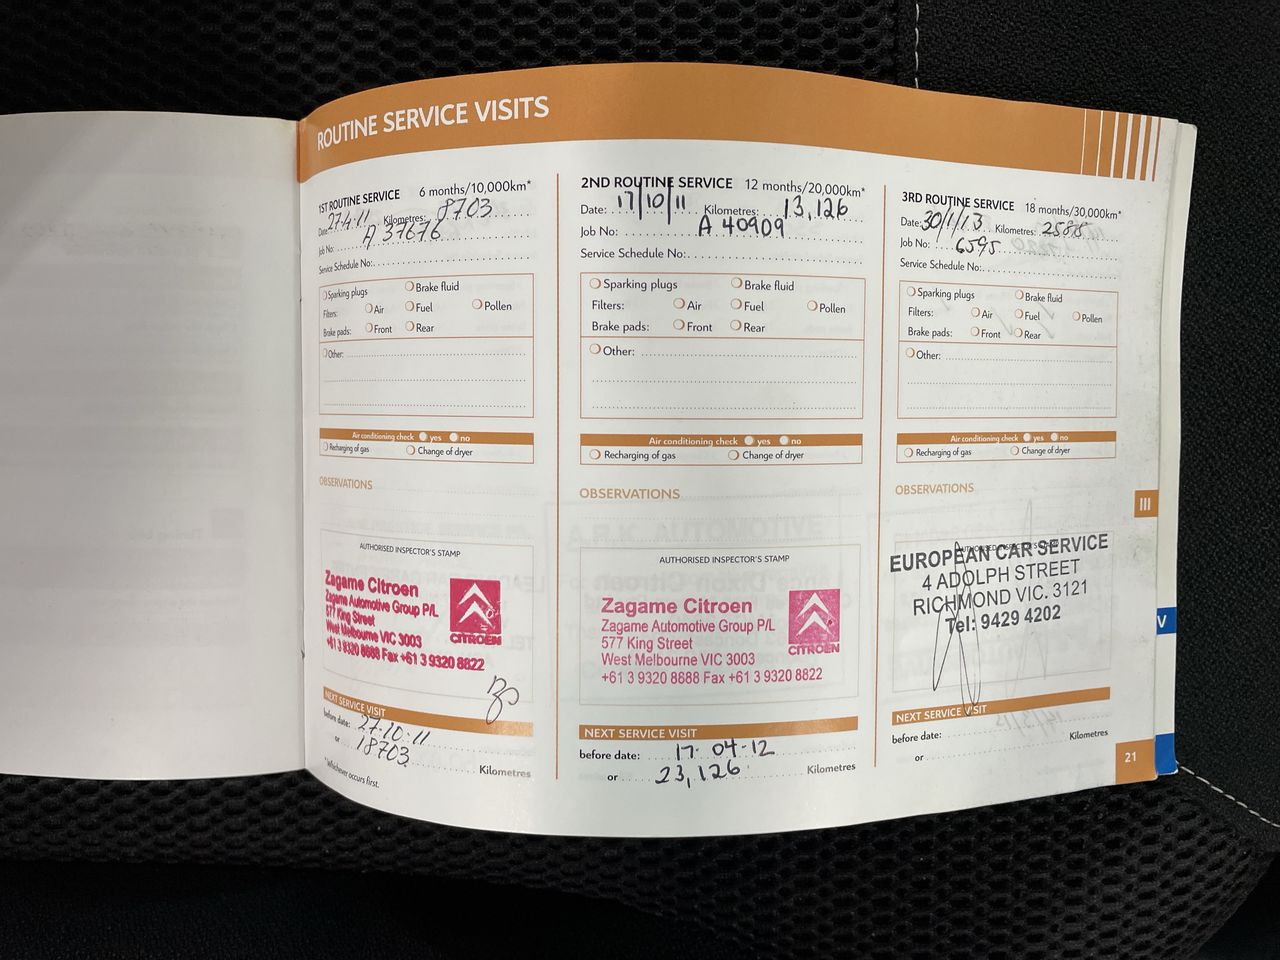 ROUTINE SERVICE VISITS
1ST ROUTINE SERVICE 6 months/10,000km*
Date: 27.4.11 Kilometres: 8703
Job No: A 37676
Service Schedule No:
Sparking plugs Brake fluid
Filters: Air Fuel Pollen
Brake pads: Front Rear
Other:
Air conditioning check yes no
Recharging of gas Change of dryer
OBSERVATIONS
AUTHORISED INSPECTOR'S STAMP
Zagame Citroen
Zagame Automotive Group P/L
577 King Street
West Melbourne VIC 3003
+61 3 9320 8888 Fax +61 3 9320 8822
CITROËN
NEXT SERVICE VISIT
before date: 27.10.11
or 18703 Kilometres
*Whichever occurs first.
2ND ROUTINE SERVICE 12 months/20,000km*
Date: 17/10/11 Kilometres: 13,126
Job No: A 40909
Service Schedule No:
Sparking plugs Brake fluid
Filters: Air Fuel Pollen
Brake pads: Front Rear
Other:
Air conditioning check yes no
Recharging of gas Change of dryer
OBSERVATIONS
AUTHORISED INSPECTOR'S STAMP
Zagame Citroen
Zagame Automotive Group P/L
577 King Street
West Melbourne VIC 3003
+61 3 9320 8888 Fax +61 3 9320 8822
CITROËN
NEXT SERVICE VISIT
before date: 17.04.12
or 23,126 Kilometres
3RD ROUTINE SERVICE 18 months/30,000km*
Date: 30/1/13 Kilometres:
Job No: 6595
Service Schedule No:
Sparking plugs Brake fluid
Filters: Air Fuel Pollen
Brake pads: Front Rear
Other:
Air conditioning check yes no
Recharging of gas Change of dryer
OBSERVATIONS
AUTHORISED INSPECTOR'S STAMP
EUROPEAN CAR SERVICE
4 ADOLPH STREET
RICHMOND VIC. 3121
Tel: 9429 4202
NEXT SERVICE VISIT
before date:
or Kilometres
III
V
21